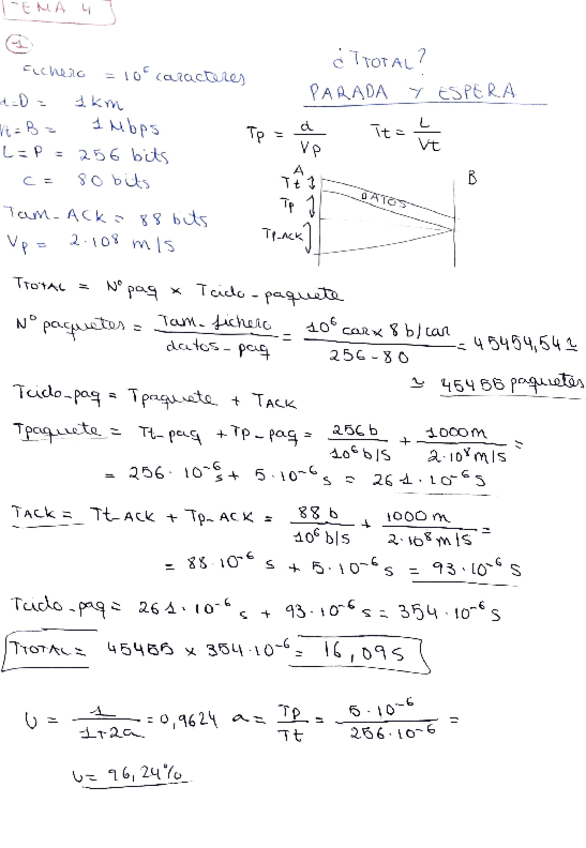 TEMA 4
1
Fichero = 10⁶ caracteres
¿TTOTAL?
PARADA Y ESPERA
d=D = 1km
Vt=B = 1Mbps
L=P = 256 bits
C = 80 bits
Tam_ACK = 88 bits
Vp = 2·10⁸ m/s
Tp = d/Vp Tt = L/Vt
A
B
Tt
DATOS
Tp
Tp_ACK
TTOTAL = Nº paq x Tciclo_paquete
Nº paquetes = Tam_fichero/datos_paq = 10⁶ car x 8 b/car/256-80 = 45454,54 ≃
≃ 45455 paquetes
Tciclo_paq = Tpaquete + TACK
Tpaquete = Tt_paq + Tp_paq = 256b/10⁶b/s + 1000m/2·10⁸m/s =
= 256·10⁻⁶s + 5·10⁻⁶s = 261·10⁻⁶s
TACK = Tt_ACK + Tp_ACK = 88 b/10⁶b/s + 1000m/2·10⁸m/s =
= 88·10⁻⁶ s + 5·10⁻⁶ s = 93·10⁻⁶ s
Tciclo_paq = 261·10⁻⁶ s + 93·10⁻⁶ s = 354·10⁻⁶ s
TTOTAL = 45455 x 354·10⁻⁶ = 16,09s
U = 1/1+2a = 0,9624 a = Tp/Tt = 5·10⁻⁶/256·10⁻⁶ =
U = 96,24%